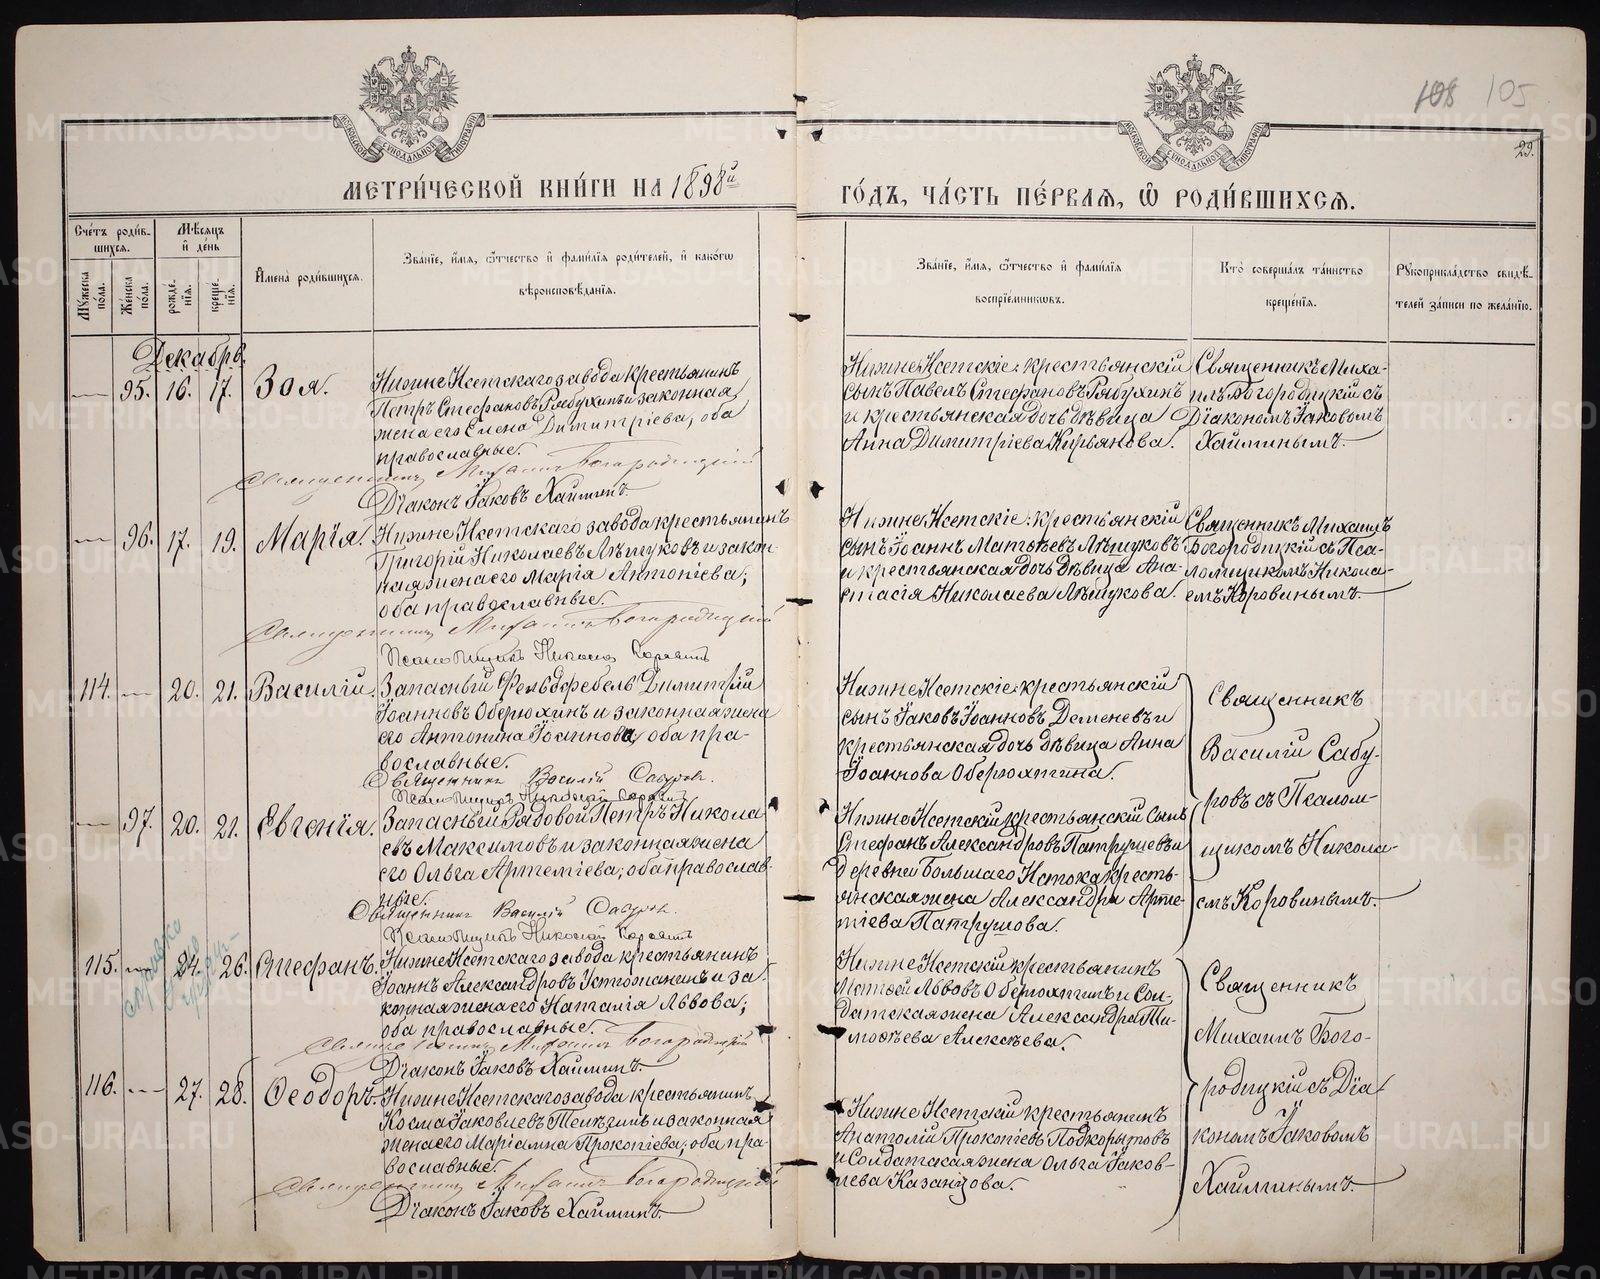 108 105
29.
МОСКОВСКОЙ СѴНОДАЛЬНОЙ ТИПОГРАФІИ
МОСКОВСКОЙ СѴНОДАЛЬНОЙ ТИПОГРАФІИ
МЕТРИ́ЧЕСКОЙ КНИ́ГИ НА 1898й
ГО́ДЪ, ЧА́СТЬ ПЕ́РВАЯ, Ѡ РОДИ́ВШИХСЯ.
Сче́тъ роди́в-
шихся.
Му́жеска по́ла.
Же́нска по́ла.
Мѣ́сяцъ
и҆ де́нь
рожде́-
нїя.
креще́-
нїя.
И҆мена̀ роди́вшихся.
Зва́нїе, и҆́мя, ѻ҆́тчество и҆ фами́лїя роди́телей, и҆ како́гѡ
вѣроисповѣ́данїя.
Зва́нїе, и҆́мя, ѻ҆́тчество и҆ фами́лїя
воспрїе́мникѡвъ.
Кто̀ соверша́лъ та́инство
креще́нїя.
Рꙋкоприкла́дство свидѣ́-
телей за́писи по жела́нїю.
Декабрь
— 95. 16. 17. Зоя.
Нижне Исетскаго завода крестьянинъ
Петръ Стефановъ Рябухинъ и законная
жена его Елена Димитріева, оба
православные.
Священникъ Михаилъ Богородицкій
Діаконъ Іаковъ Хайминъ.
Нижне Исетскіе: крестьянскій
сынъ Павелъ Стефановъ Рябухинъ
и крестьянская дочь дѣвица
Анна Димитріева Кирьянова.
Священникъ Миха-
илъ Богородицкій съ
Діакономъ Іаковомъ
Хайминымъ.
— 96. 17. 19. Марія.
Нижне Исетскаго завода крестьянинъ
Григорій Николаевъ Лѣшуковъ и закон-
ная жена его Марія Антоніева;
оба православные.
Священникъ Михаилъ Богородицкій
Псаломщикъ Николай Коровинъ
Нижне Исетскіе: крестьянскій
сынъ Іоаннъ Матѳѣевъ Лѣшуковъ
и крестьянская дочь дѣвица Ана-
стасія Николаева Лѣшукова.
Священникъ Михаилъ
Богородицкій съ Пса-
ломщикомъ Никола-
емъ Коровинымъ.
114. — 20. 21. Василій.
Запасный Фельдфебель Димитрій
Іоанновъ Оберюхтинъ и законная жена
его Антонина Іоаннова, оба пра-
вославные.
Священникъ Василій Сабуровъ.
Псаломщикъ Николай Коровинъ
Нижне Исетскіе: крестьянскій
сынъ Іаковъ Іоанновъ Деменевъ и
крестьянская дочь дѣвица Анна
Іоаннова Оберюхтина.
Священникъ
Василій Сабу-
ровъ съ Псалом-
щикомъ Никола-
емъ Коровинымъ.
— 97. 20. 21. Евгенія.
Запасный Рядовой Петръ Никола
евъ Максимовъ и законная жена
его Ольга Артеміева; оба православ-
ные.
Священникъ Василій Сабуровъ.
Псаломщикъ Николай Коровинъ
Нижне Исетскій крестьянскій сынъ
Стефанъ Александровъ Патрушевъ и
деревни Большаго Истока кресть-
янская жена Александра Арте-
міева Патрушова.
115. — 24. 26. Стефанъ.
Нижне Исетскаго завода крестьянинъ
Іоаннъ Александровъ Устюжанинъ и за-
конная жена его Наталія Львова;
оба православные.
Священникъ Михаилъ Богородицкій
Діаконъ Іаковъ Хайминъ.
Нижне Исетскій крестьянинъ
Матѳей Львовъ Оберюхтинъ и Сол-
датская жена Александра Ти-
моѳѣева Алексѣева.
Священникъ
Михаилъ Бого-
родицкій съ Діа-
кономъ Іаковомъ
Хайминымъ.
116. — 27. 28. Ѳеодоръ.
Нижне Исетскаго завода крестьянинъ
Косма Іаковлевъ Телѣгинъ и законная
жена его Маріамна Прокопіева, оба пра-
вославные.
Священникъ Михаилъ Богородицкій
Діаконъ Іаковъ Хайминъ.
Нижне Исетскій крестьянинъ
Анатолій Прокопіевъ Подкорытовъ
и Солдатская жена Ольга Іаков-
лева Казанцова.
METRIKI.GASO-URAL.RU